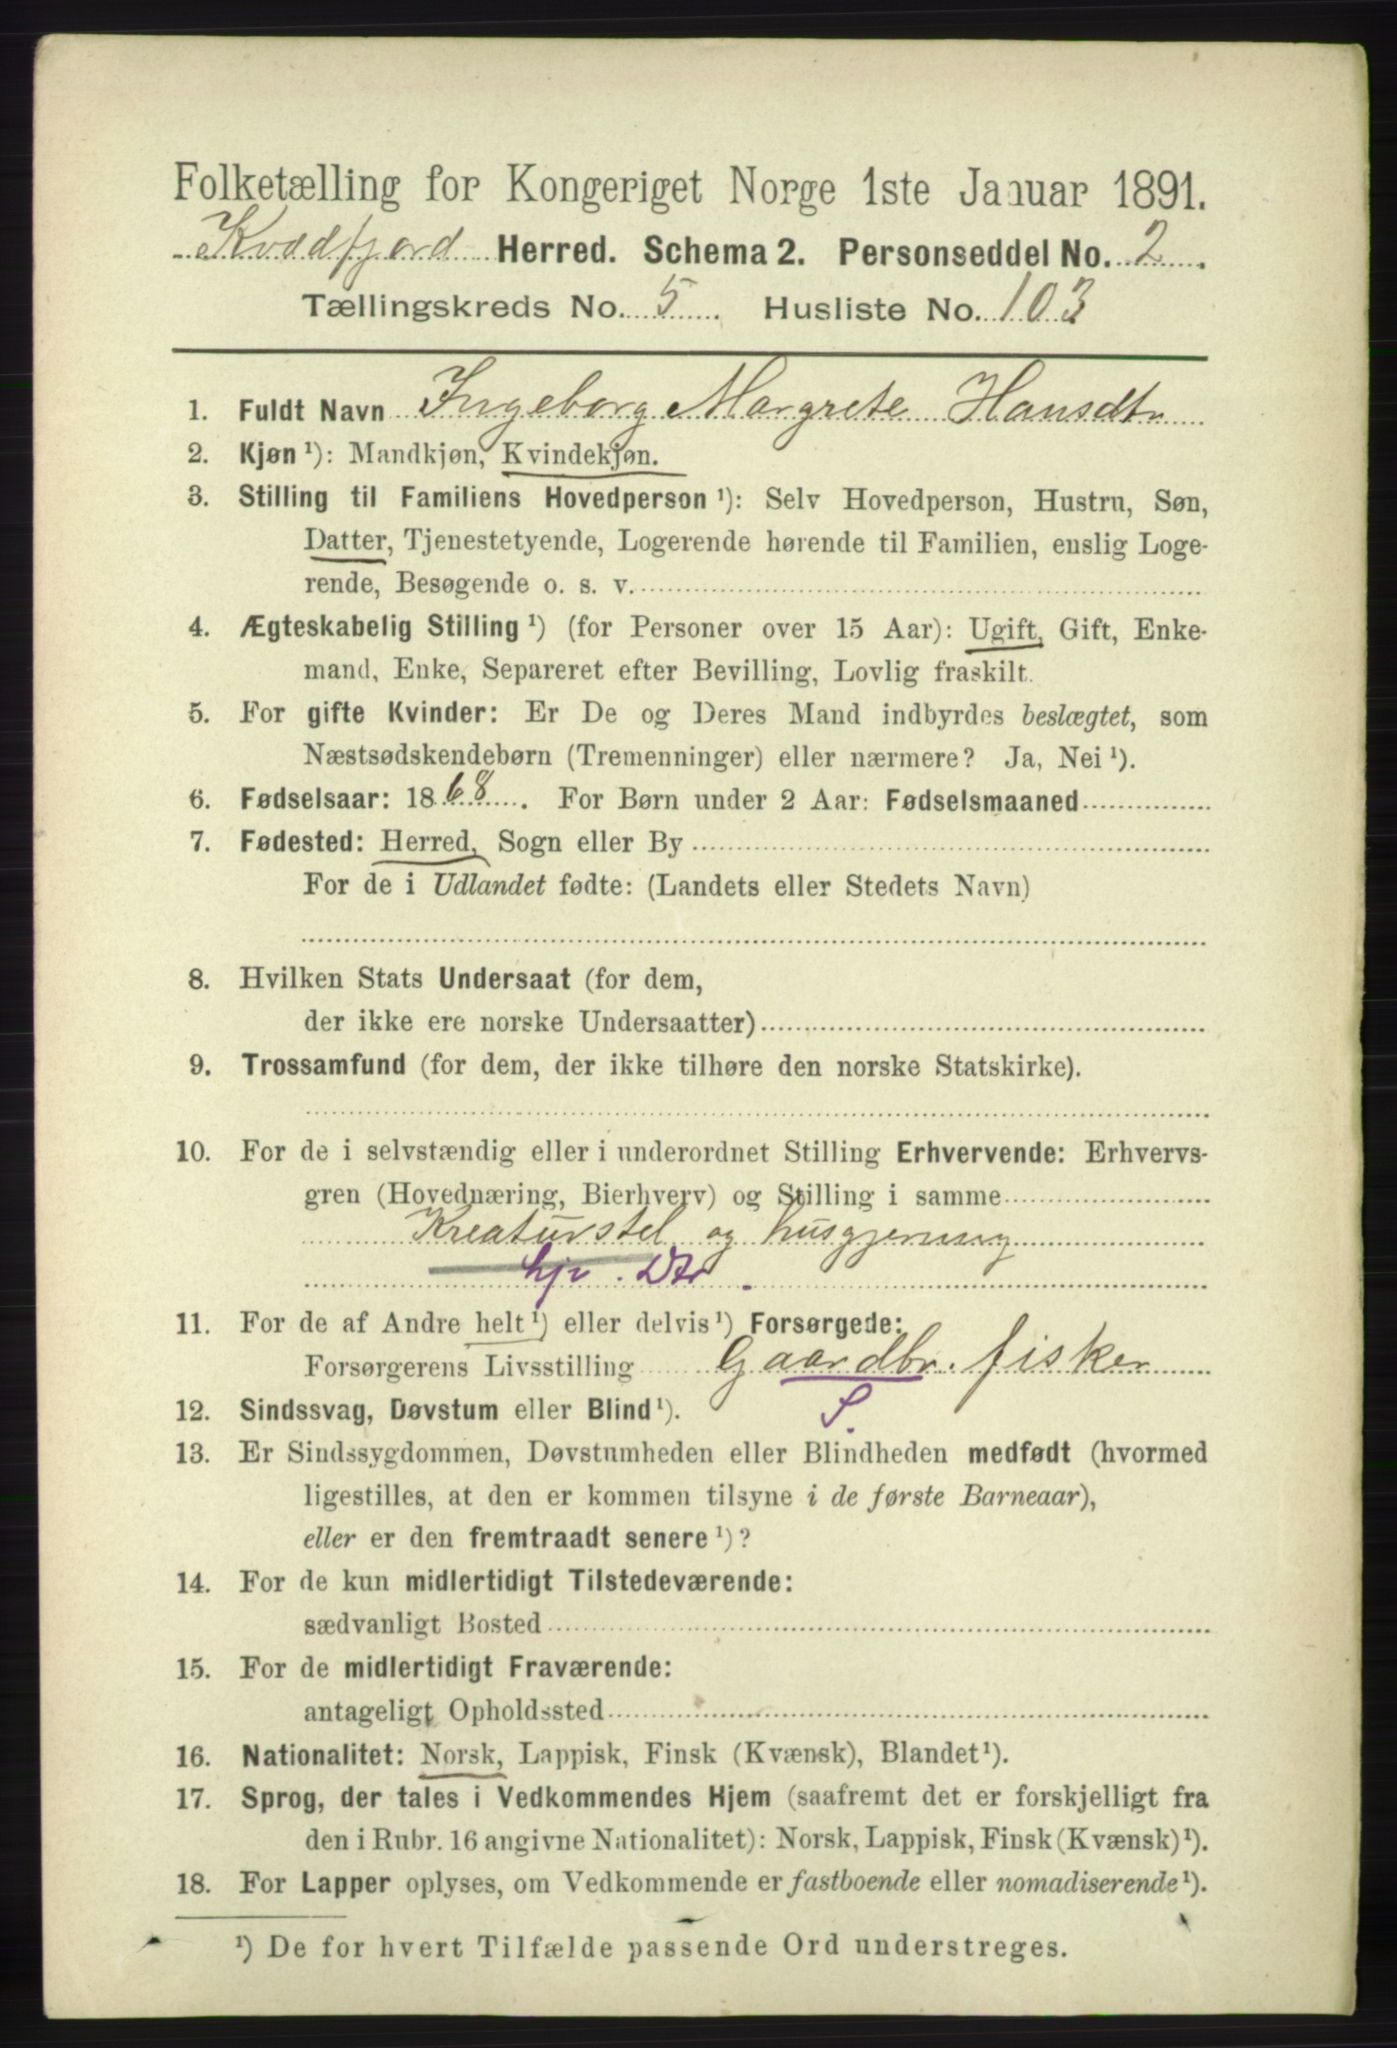 Folketælling for Kongeriget Norge 1ste Januar 1891.
Kvædfjord Herred. Schema 2. Personseddel No. 2
Tællingskreds No. 5 Husliste No. 103
1. Fuldt Navn Ingeborg Margrete Hansdtr
2. Kjøn ¹): Mandkjøn, Kvindekjøn.
3. Stilling til Familiens Hovedperson ¹): Selv Hovedperson, Hustru, Søn,
Datter, Tjenestetyende, Logerende hørende til Familien, enslig Loge-
rende, Besøgende o. s. v.
4. Ægteskabelig Stilling ¹) (for Personer over 15 Aar): Ugift, Gift, Enke-
mand, Enke, Separeret efter Bevilling, Lovlig fraskilt.
5. For gifte Kvinder: Er De og Deres Mand indbyrdes beslægtet, som
Næstsødskendebørn (Tremenninger) eller nærmere? Ja, Nei ¹).
6. Fødselsaar: 1868. For Børn under 2 Aar: Fødselsmaaned
7. Fødested: Herred, Sogn eller By
For de i Udlandet fødte: (Landets eller Stedets Navn)
8. Hvilken Stats Undersaat (for dem,
der ikke ere norske Undersaatter)
9. Trossamfund (for dem, der ikke tilhøre den norske Statskirke).
10. For de i selvstændig eller i underordnet Stilling Erhvervende: Erhvervs-
gren (Hovednæring, Bierhverv) og Stilling i samme
Kreaturstel og husgjerning
hjv. Dtr.
11. For de af Andre helt ¹) eller delvis ¹) Forsørgede:
Forsørgerens Livsstilling Gaardbr. fisker
S.
12. Sindssvag, Døvstum eller Blind ¹).
13. Er Sindssygdommen, Døvstumheden eller Blindheden medfødt (hvormed
ligestilles, at den er kommen tilsyne i de første Barneaar),
eller er den fremtraadt senere ¹)?
14. For de kun midlertidigt Tilstedeværende:
sædvanligt Bosted
15. For de midlertidigt Fraværende:
antageligt Opholdssted
16. Nationalitet: Norsk, Lappisk, Finsk (Kvænsk), Blandet ¹).
17. Sprog, der tales i Vedkommendes Hjem (saafremt det er forskjelligt fra
den i Rubr. 16 angivne Nationalitet): Norsk, Lappisk, Finsk (Kvænsk) ¹).
18. For Lapper oplyses, om Vedkommende er fastboende eller nomadiserende ¹).
¹) De for hvert Tilfælde passende Ord understreges.